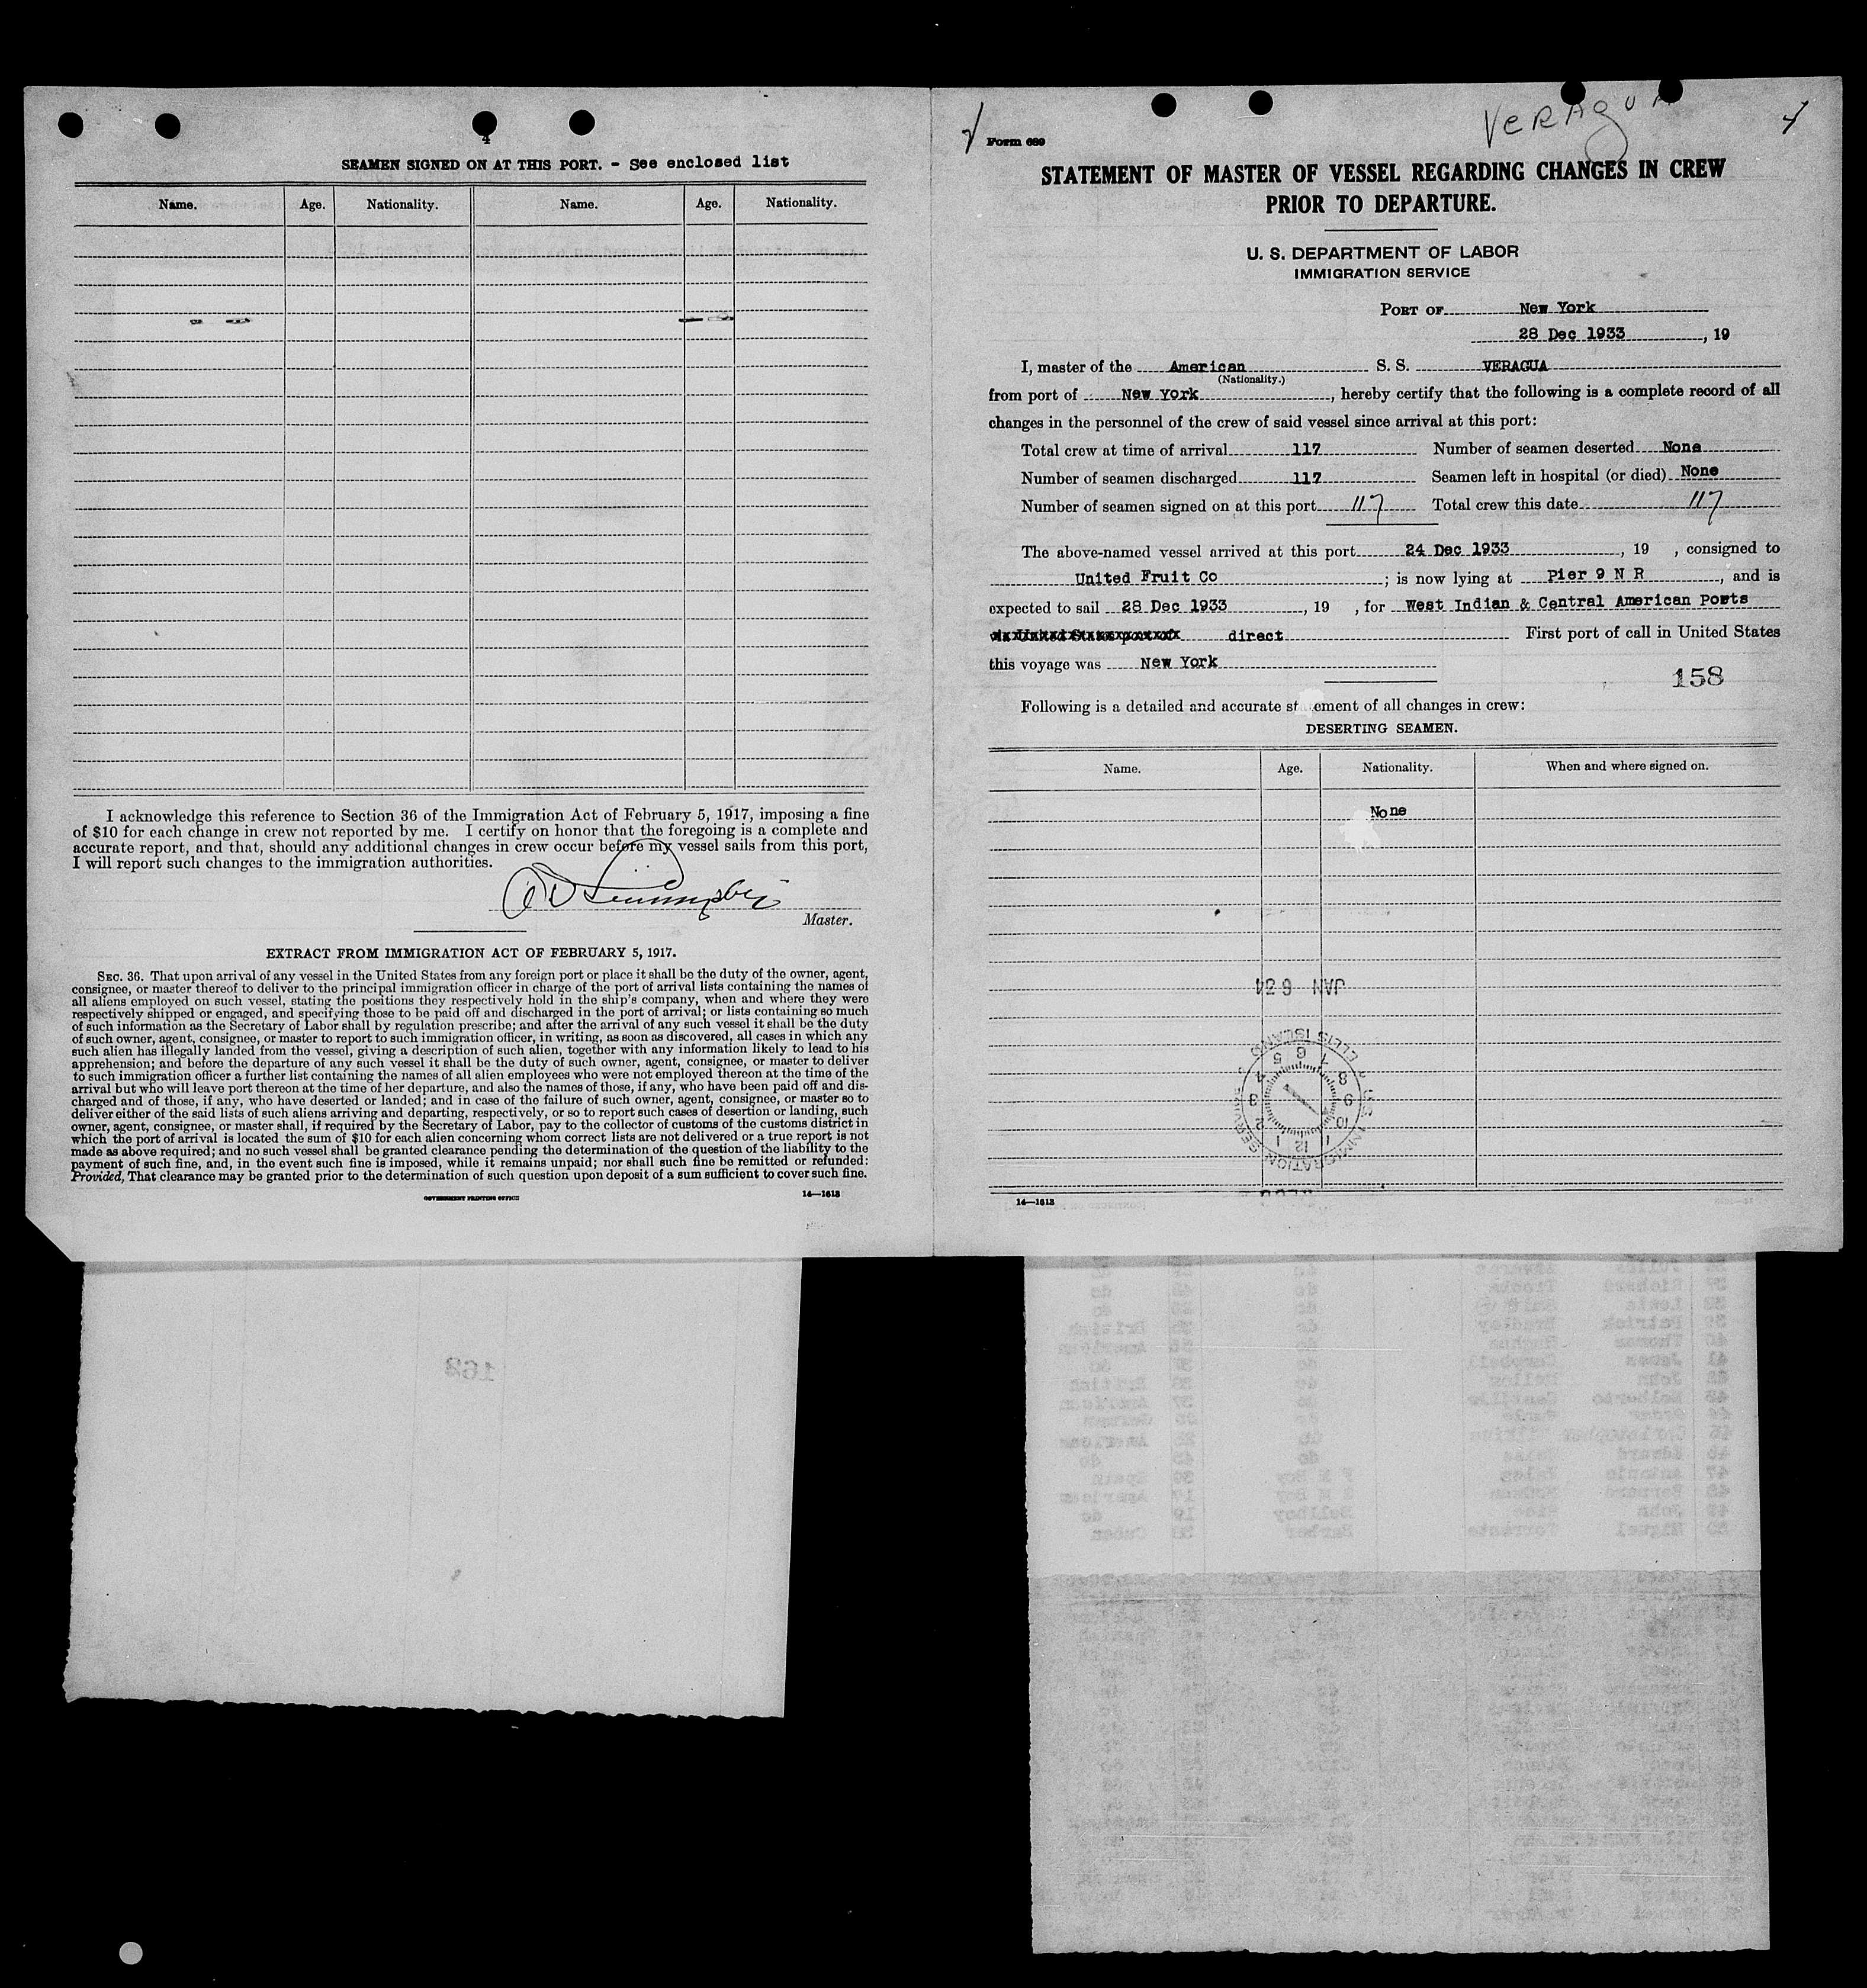 4
SEAMEN SIGNED ON AT THIS PORT. - See enclosed list
Name. Age. Nationality. Name. Age. Nationality.
I acknowledge this reference to Section 36 of the Immigration Act of February 5, 1917, imposing a fine
of $10 for each change in crew not reported by me. I certify on honor that the foregoing is a complete and
accurate report, and that, should any additional changes in crew occur before my vessel sails from this port,
I will report such changes to the immigration authorities.
Master.
EXTRACT FROM IMMIGRATION ACT OF FEBRUARY 5, 1917.
SEC. 36. That upon arrival of any vessel in the United States from any foreign port or place it shall be the duty of the owner, agent,
consignee, or master thereof to deliver to the principal immigration officer in charge of the port of arrival lists containing the names of
all aliens employed on such vessel, stating the positions they respectively hold in the ship's company, when and where they were
respectively shipped or engaged, and specifying those to be paid off and discharged in the port of arrival; or lists containing so much
of such information as the Secretary of Labor shall by regulation prescribe; and after the arrival of any such vessel it shall be the duty
of such owner, agent, consignee, or master to report to such immigration officer, in writing, as soon as discovered, all cases in which any
such alien has illegally landed from the vessel, giving a description of such alien, together with any information likely to lead to his
apprehension; and before the departure of any such vessel it shall be the duty of such owner, agent, consignee, or master to deliver
to such immigration officer a further list containing the names of all alien employees who were not employed thereon at the time of the
arrival but who will leave port thereon at the time of her departure, and also the names of those, if any, who have been paid off and dis-
charged and of those, if any, who have deserted or landed; and in case of the failure of such owner, agent, consignee, or master so to
deliver either of the said lists of such aliens arriving and departing, respectively, or so to report such cases of desertion or landing, such
owner, agent, consignee, or master shall, if required by the Secretary of Labor, pay to the collector of customs of the customs district in
which the port of arrival is located the sum of $10 for each alien concerning whom correct lists are not delivered or a true report is not
made as above required; and no such vessel shall be granted clearance pending the determination of the question of the liability to the
payment of such fine, and, in the event such fine is imposed, while it remains unpaid; nor shall such fine be remitted or refunded:
Provided, That clearance may be granted prior to the determination of such question upon deposit of a sum sufficient to cover such fine.
GOVERNMENT PRINTING OFFICE 14—1613
VERAGUA
Form 689
STATEMENT OF MASTER OF VESSEL REGARDING CHANGES IN CREW
PRIOR TO DEPARTURE.
U. S. DEPARTMENT OF LABOR
IMMIGRATION SERVICE
PORT OF New York
28 Dec 1933, 19
I, master of the American S. S. VERAGUA
(Nationality.)
from port of New York, hereby certify that the following is a complete record of all
changes in the personnel of the crew of said vessel since arrival at this port:
Total crew at time of arrival 117 Number of seamen deserted None
Number of seamen discharged 117 Seamen left in hospital (or died) None
Number of seamen signed on at this port 117 Total crew this date 117
The above-named vessel arrived at this port 24 Dec 1933, 19 , consigned to
United Fruit Co; is now lying at Pier 9 N R, and is
expected to sail 28 Dec 1933, 19 , for West Indian & Central American Ports
direct First port of call in United States
this voyage was New York
158
Following is a detailed and accurate st ement of all changes in crew:
DESERTING SEAMEN.
Name. Age. Nationality. When and where signed on.
None
JAN 6 34
U.S. IMMIGRATION SERVICE ELLIS ISLAND
14—1613